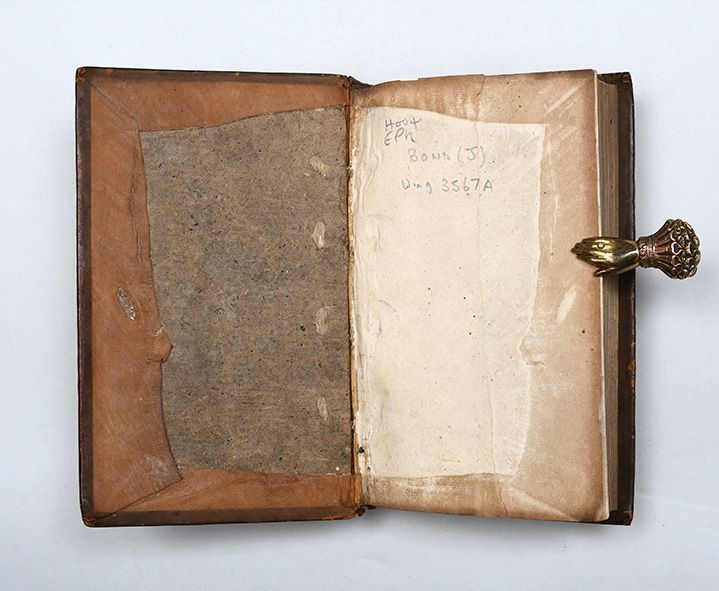 Hoo+
EPh
BOND (J)
Wing 3567A